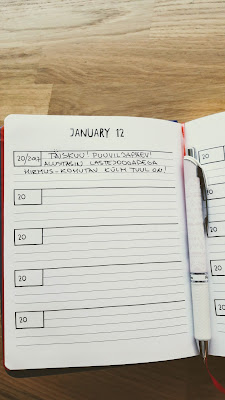 JANUARY 12
20/2017 TÄISKUU! PUUVILJAPÄEV!
ALUSTASIN LASTEJOOGADEGA
HIRMUS-KOHUTAV KÜLM TUUL ON!
20
20
20
20
20
20